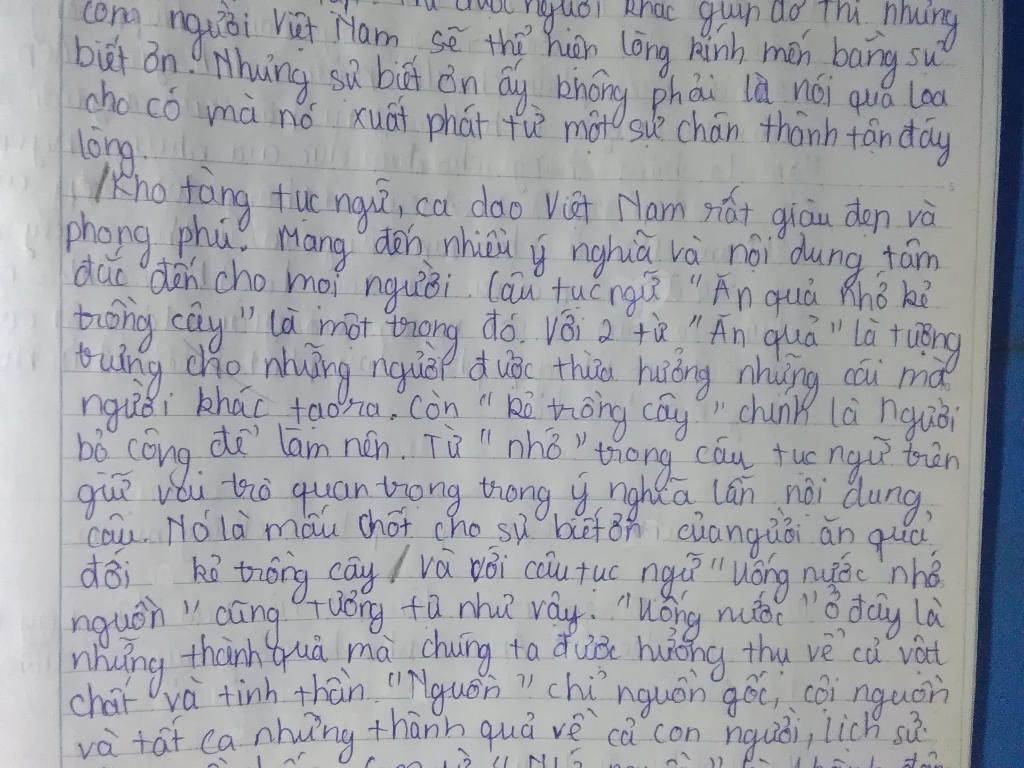 người khác giúp đỡ thì những
con người Việt Nam sẽ thể hiện lòng kính mến bằng sự
biết ơn. Nhưng sự biết ơn ấy không phải là nói qua loa
cho có mà nó xuất phát từ một sự chân thành tận đáy
lòng.
/Kho tàng tục ngữ, ca dao Việt Nam rất giàu đẹp và
phong phú. Mang đến nhiều ý nghĩa và nội dung tâm
đắc đến cho mọi người. Câu tục ngữ "Ăn quả nhớ kẻ
trồng cây" là một trong đó. Với 2 từ "Ăn quả" là tượng
trưng cho những người được thừa hưởng những cái mà
người khác tạo ra. Còn "kẻ trồng cây" chính là người
bỏ công để làm nên. Từ "nhớ" trong câu tục ngữ trên
giữ vai trò quan trọng trong ý nghĩa lẫn nội dung
câu. Nó là mấu chốt cho sự biết ơn của người ăn quả
đối kẻ trồng cây / và với câu tục ngữ "Uống nước nhớ
nguồn" cũng tương tự như vậy. "Uống nước" ở đây là
những thành quả mà chúng ta được hưởng thụ về cả vật
chất và tinh thần. "Nguồn" chỉ nguồn gốc, cội nguồn
và tất cả những thành quả về cả con người, lịch sử